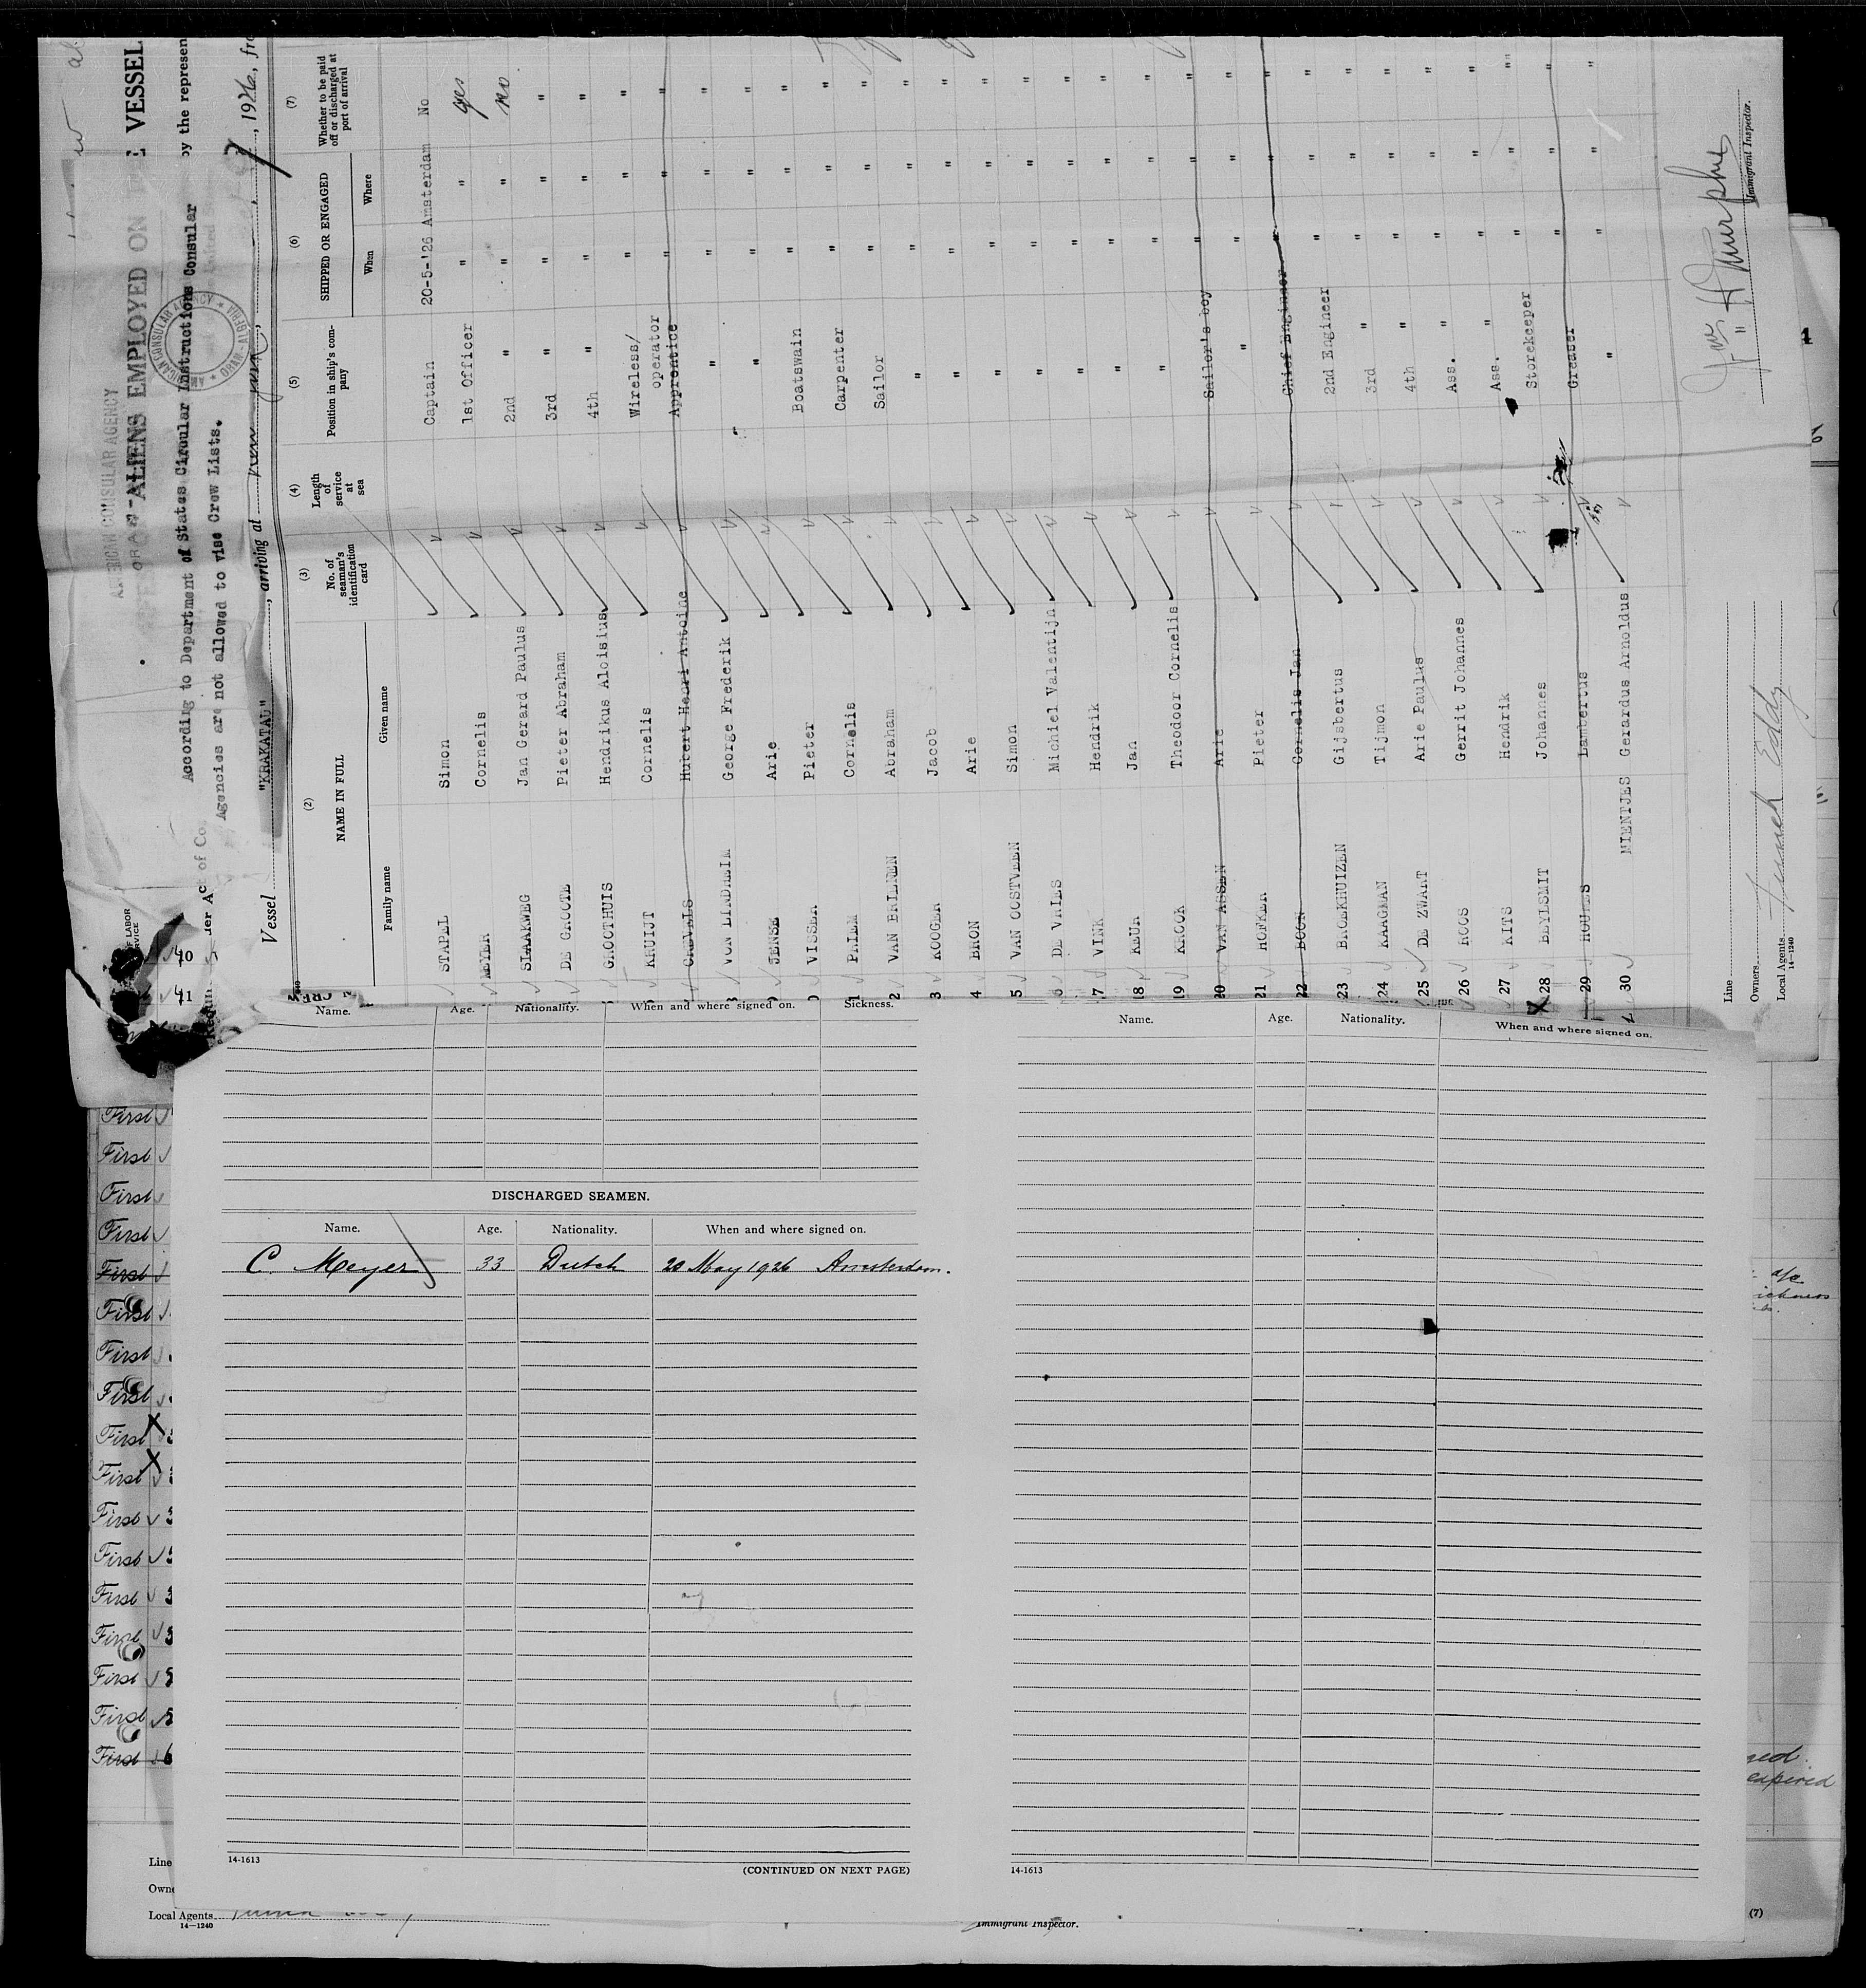 AMERICAN CONSULAR AGENCY
ALIENS EMPLOYED ON VESSEL
According to Department of States Circular Instructions Consular
Agencies are not allowed to vise Crew Lists.
by the represen
AMERICAN CONSULAR AGENCY ORAN-ALGERIA
Vessel "KRAKATAU", arriving at new york, 7, 1926, fro
(2) (3) (4) (5) (6) (7)
NAME IN FULL
Family name Given name
No. of seaman's identification card
Length of service at sea
Position in ship's company
SHIPPED OR ENGAGED
When Where
Whether to be paid off or discharged at port of arrival
STAPEL Simon Captain 20-5-'26 Amsterdam No
MEYER Cornelis 1st Officer " " yes
SLAAKWEG Jan Gerard Paulus 2nd " " " no
DE GROOTE Pieter Abraham 3rd " " " "
GROOTHUIS Hendrikus Aloisius 4th " " " "
KRUIJT Cornelis Wireless/operator " " "
Hubert Henri Antoine Apprentice " "
VON LINDHEIM George Frederik " " " "
JENSE Arie " " " "
VISSER Pieter Boatswain " " "
PRIEM Cornelis Carpenter " " "
VAN BRIENEN Abraham Sailor " " "
3 KOOGER Jacob " " " "
4 BRON Arie " " " "
5 VAN OOSTVEEN Simon " " " "
DE VRIES Michiel Valentijn " " " "
7 VINK Hendrik " " " "
18 KEUR Jan " " " "
19 KROOK Theodoor Cornelis " " " "
20 VAN ASSEN Arie Sailor's boy " " "
21 HOFKER Pieter " " " "
22 BOON Cornelis Jan Chief Engineer " " "
23 BROEKHUIZEN Gijsbertus 2nd Engineer " " "
24 KAAGMAN Tijmon 3rd " " " "
25 DE ZWART Arie Paulus 4th " " " "
26 ROOS Gerrit Johannes Ass. " " " "
27 KITS Hendrik Ass. " " " "
28 BEYLSMIT Johannes Storekeeper " " "
29 Lambertus Greaser " " "
30 MIENTJES Gerardus Arnoldus " " " "
Line
Owners
Local Agents Funch Edye
14-1240
Jas H Murphy
Immigrant Inspector.
40
41
Name. Age. Nationality. When and where signed on. Sickness.
DISCHARGED SEAMEN.
Name. Age. Nationality. When and where signed on.
C. Meyer 33 Dutch 20 May 1926 Amsterdam.
14-1613
(CONTINUED ON NEXT PAGE)
Name. Age. Nationality. When and where signed on.
14-1613
First
First
First
First
First
First
First
First
First
First
First
First
First
First
First
First
First
expired
Line
Owne
Local Agents
14-1240
Immigrant Inspector.
(7)